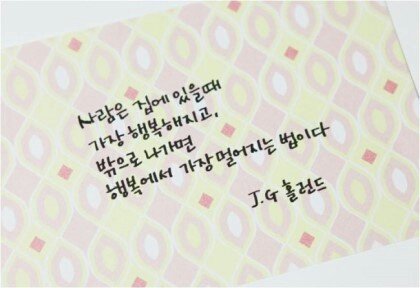 사람은 집에 있을때
가장 행복해지고,
밖으로 나가면
행복에서 가장 멀어지는 법이다
J.G 홀런드